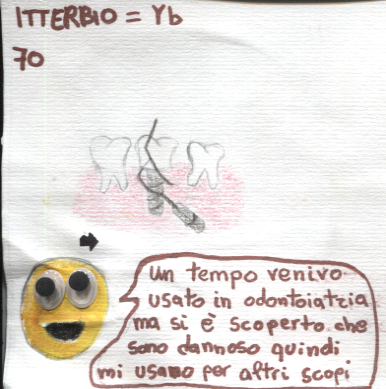 ITTERBIO = Yb
70
Un tempo venivo
usato in odontoiatria
ma si è scoperto che
sono dannoso quindi
mi usano per altri scopi